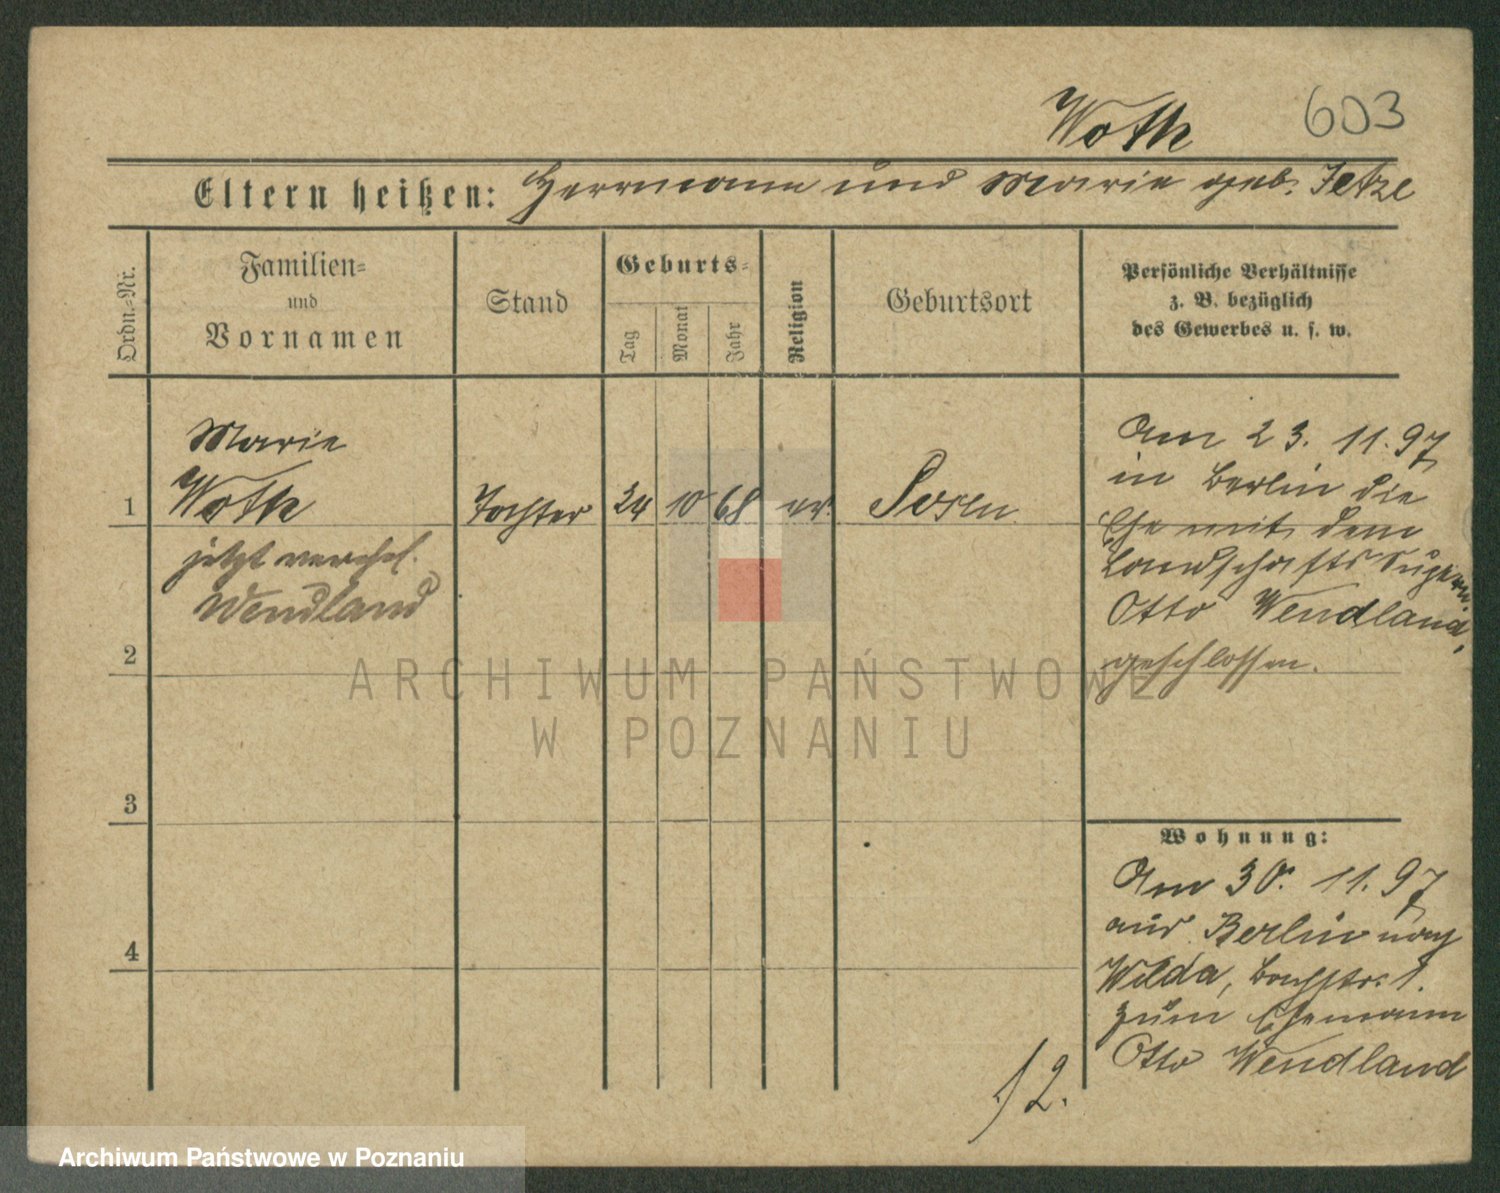 Woth 603
Eltern heißen: Herrmann und Marie geb. Jetze
Ordn.-Nr.
Familien-
und
Vornamen
Stand
Geburts-
Tag
Monat
Jahr
Religion
Geburtsort
Persönliche Verhältnisse
z. B. bezüglich
des Gewerbes u. s. w.
Marie
1 Woth Tochter 24 10 68 ev. Posen
jetzt verehel.
Wendland
2
3
4
Am 23. 11. 97
in Berlin die
Ehe mit dem
Landschafts Supern.
Otto Wendland,
geschlossen.
Wohnung:
Am 30. 11. 97
aus Berlin nach
Wilda, Bachstr. 1.
zum Ehemann
Otto Wendland
./2.
ARCHIWUM PAŃSTWOWE
W POZNANIU
Archiwum Państwowe w Poznaniu